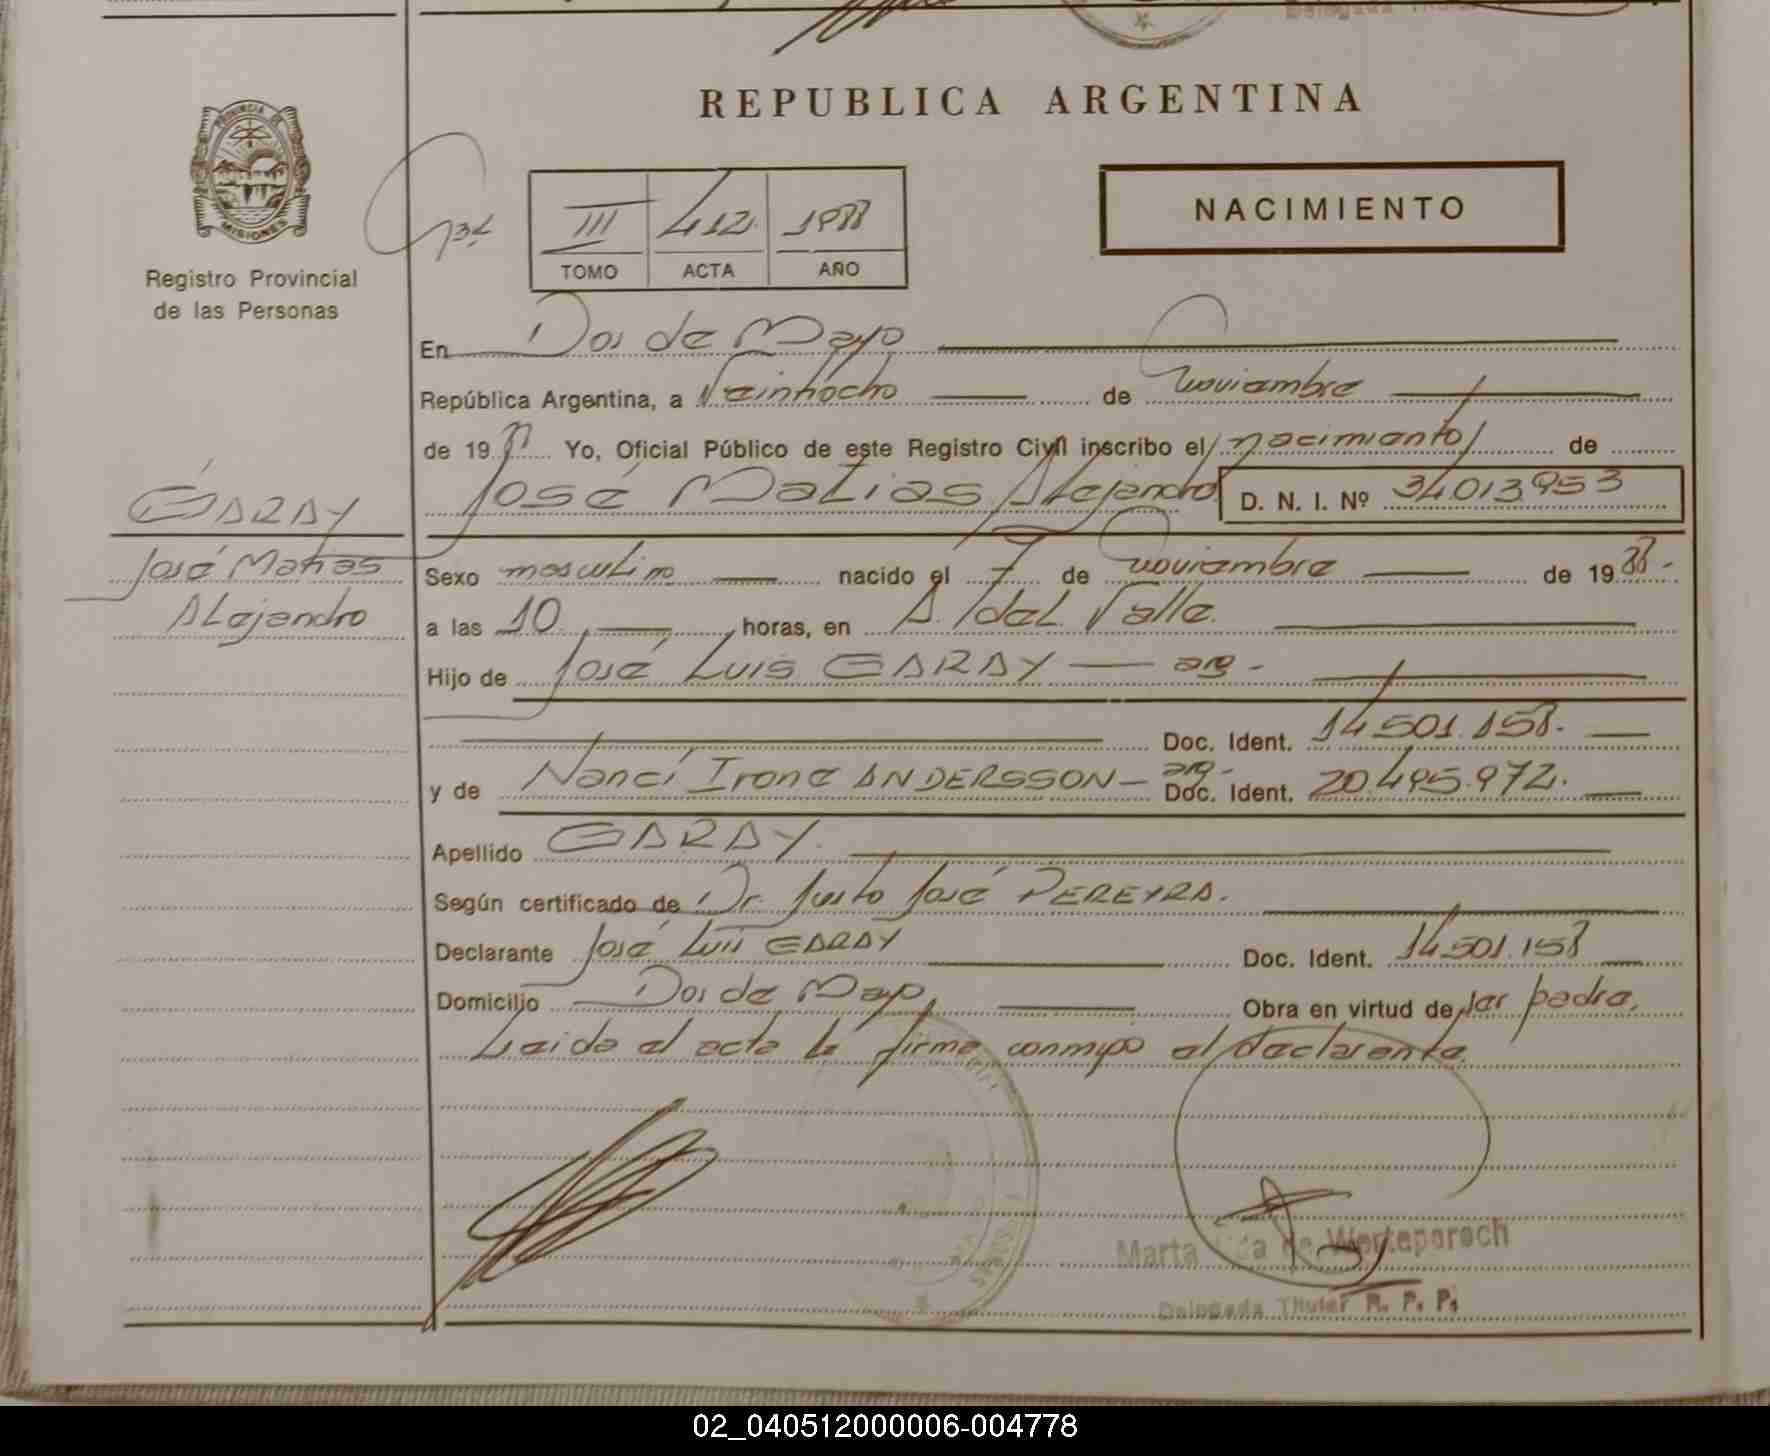 REPUBLICA ARGENTINA
PROVINCIA DE
MISIONES
Registro Provincial
de las Personas
III 412 1988
TOMO ACTA AÑO
NACIMIENTO
En Dos de Mayo
República Argentina, a Veintiocho de noviembre
de 1988 Yo, Oficial Público de este Registro Civil inscribo el nacimiento de
José Matías Alejandro D. N. I. Nº 34013953
GARAY
José Matías
Alejandro
Sexo masculino nacido el 7 de noviembre de 1988.-
a las 10 horas, en A. del Valle.
Hijo de José Luis GARAY — arg -
Doc. Ident. 14.501.158.
y de Nanci Irone ANDERSSON - arg - Doc. Ident. 20.495.972.
Apellido GARAY.
Según certificado de Dr. Justo José PEREYRA.
Declarante José Luis GARAY Doc. Ident. 14.501.158
Domicilio Dos de Mayo, Obra en virtud de ser padre.
Leida el acta la firma conmigo el declarante.
Marta de Werteparoch
Delegada Titular R. P. P.
02_040512000006-004778